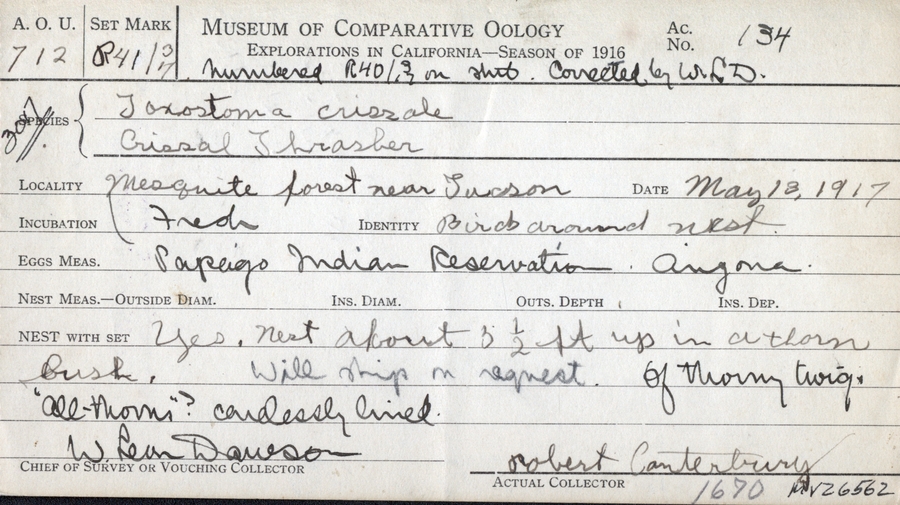 A. O. U. SET MARK MUSEUM OF COMPARATIVE OOLOGY Ac. No. 134
712 R41/3/17 EXPLORATIONS IN CALIFORNIA—SEASON OF 1916
Numbered R40/ on shtb. Corrected by W.L.D.
SPECIES Toxostoma crissale
307/1. Crissal Thrasher
LOCALITY Mesquite forest near Tucson DATE May 13, 1917
INCUBATION Fresh IDENTITY Birds around nest.
EGGS MEAS. Papeigo Indian Reservation. Arizona.
NEST MEAS.—OUTSIDE DIAM. INS. DIAM. OUTS. DEPTH INS. DEP.
NEST WITH SET Yes. Nest about 3 1/2 ft up in a thorn
bush. Will ship on request. Of thorny twigs
"all-thorns"? carelessly lined.
W. Leon Dawson
CHIEF OF SURVEY OR VOUCHING COLLECTOR
Robert Canterbury
ACTUAL COLLECTOR
1670 MVZ6562